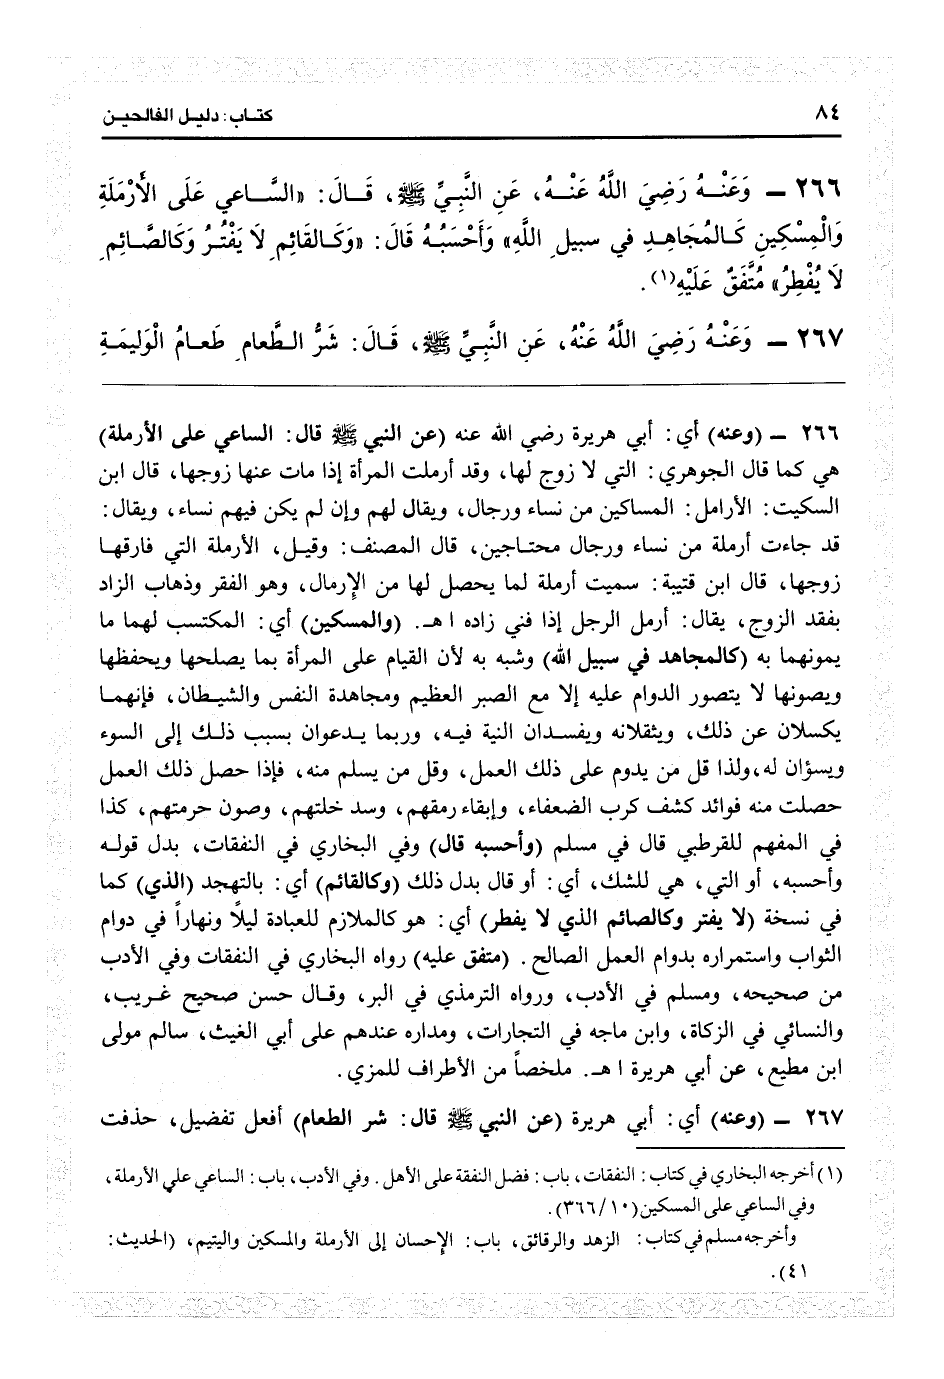 ٨٤
كتاب: دليل الفالحين
٢٦٦ ـ وَعَنْهُ رَضِيَ اللَّهُ عَنْهُ، عَنِ النَّبِيِّ ﷺ، قَالَ: «السَّاعي عَلَى الأَرْمَلَةِ
وَالْمِسْكِينِ كَالمُجَاهِدِ في سبيلِ اللَّهِ» وَأَحْسَبُهُ قَالَ: «وَكَالقَائمِ لَا يَفْتُرُ وَكَالصَّائِمِ
لَا يُفْطِرُ» مُتَّفَقٌ عَلَيْهِ(١).
٢٦٧ ـ وَعَنْهُ رَضِيَ اللَّهُ عَنْهُ، عَنِ النَّبِيِّ ﷺ، قَالَ: شَرُّ الطَّعامِ طَعامُ الْوَليمَةِ
٢٦٦ ـ (وعنه) أي: أبي هريرة رضي الله عنه (عن النبي ﷺ قال: الساعي على الأرملة)
هي كما قال الجوهري: التي لا زوج لها، وقد أرملت المرأة إذا مات عنها زوجها، قال ابن
السكيت: الأرامل: المساكين من نساء ورجال، ويقال لهم وإن لم يكن فيهم نساء، ويقال:
قد جاءت أرملة من نساء ورجال محتاجين، قال المصنف: وقيل، الأرملة التي فارقها
زوجها، قال ابن قتيبة: سميت أرملة لما يحصل لها من الإِرمال، وهو الفقر وذهاب الزاد
بفقد الزوج، يقال: أرمل الرجل إذا فني زاده ا هـ. (والمسكين) أي: المكتسب لهما ما
يمونهما به (كالمجاهد في سبيل الله) وشبه به لأن القيام على المرأة بما يصلحها ويحفظها
ويصونها لا يتصور الدوام عليه إلا مع الصبر العظيم ومجاهدة النفس والشيطان، فإنهما
يكسلان عن ذلك، ويثقلانه ويفسدان النية فيه، وربما يدعوان بسبب ذلك إلى السوء
ويسؤان له،ولذا قل من يدوم على ذلك العمل، وقل من يسلم منه، فإذا حصل ذلك العمل
حصلت منه فوائد كشف كرب الضعفاء، وإبقاء رمقهم، وسد خلتهم، وصون حرمتهم، كذا
في المفهم للقرطبي قال في مسلم (وأحسبه قال) وفي البخاري في النفقات، بدل قوله
وأحسبه، أو التي، هي للشك، أي: أو قال بدل ذلك (وكالقائم) أي: بالتهجد (الذي) كما
في نسخة (لا يفتر وكالصائم الذي لا يفطر) أي: هو كالملازم للعبادة ليلاً ونهاراً في دوام
الثواب واستمراره بدوام العمل الصالح. (متفق عليه) رواه البخاري في النفقات وفي الأدب
من صحيحه، ومسلم في الأدب، ورواه الترمذي في البر، وقال حسن صحيح غريب،
والنسائي في الزكاة، وابن ماجه في التجارات، ومداره عندهم على أبي الغيث، سالم مولى
ابن مطيع، عن أبي هريرة ا هـ. ملخصاً من الأطراف للمزي.
٢٦٧ ـ (وعنه) أي: أبي هريرة (عن النبي ﷺ قال: شر الطعام) أفعل تفضيل، حذفت
(١) أخرجه البخاري في كتاب: النفقات، باب: فضل النفقة على الأهل. وفي الأدب، باب: الساعي على الأرملة،
وفي الساعي على المسكين (٣٦٦/١٠).
وأخرجه مسلم في كتاب: الزهد والرقائق، باب: الإحسان إلى الأرملة والمسكين واليتيم، (الحديث:
٤١).